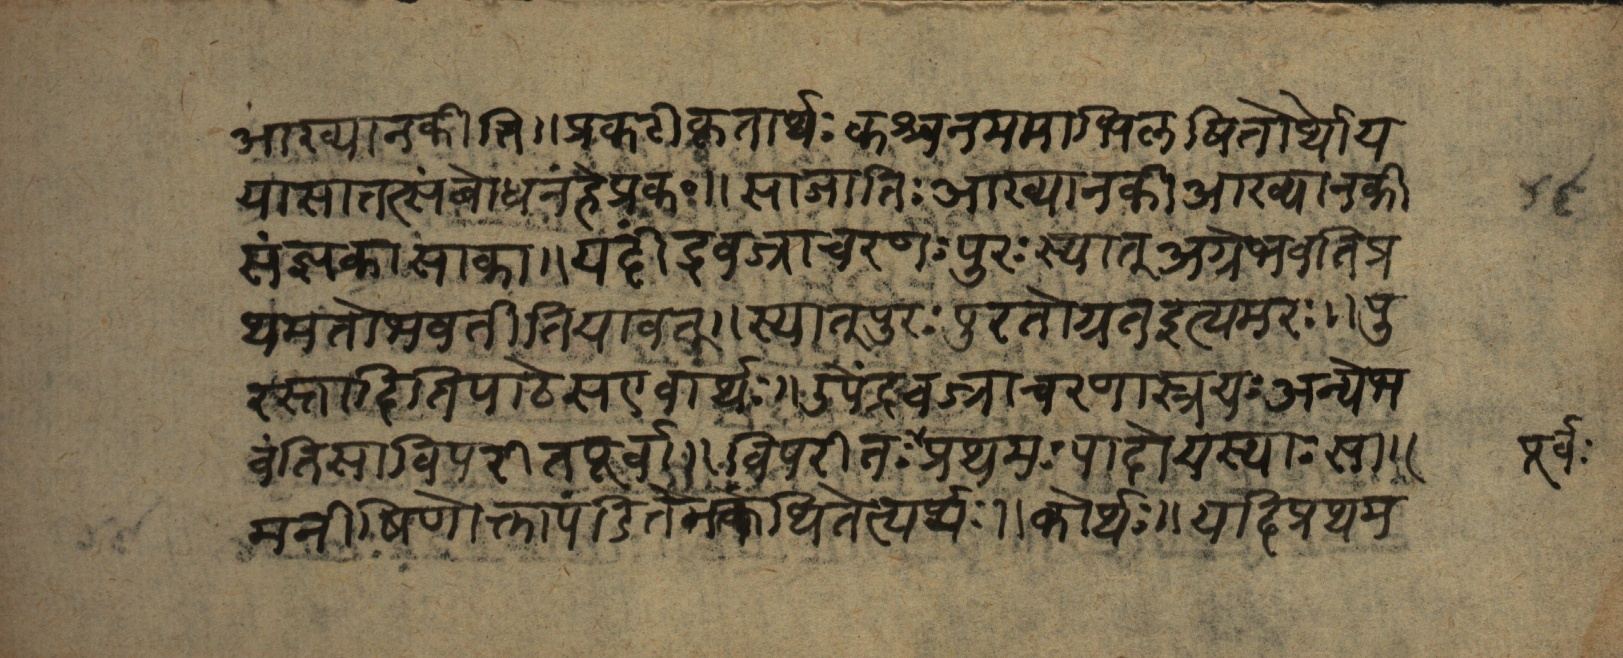 आख्यानकीति॥प्रकटीकृतार्थः कश्चनममाभिलषितोर्थोय
यासातत्संबोधनंहेप्रक्तः॥साजातिःआख्यानकीआख्यानकी
संज्ञकासाका॥यदींद्रवज्राचरणःपुरःस्यात्अग्रेभवतिप्र
थमतोभवतीतियावत्॥स्यात्पुरःपुरतोग्रतइत्यमरः॥पु
रस्तादितिपाठेसएवार्थः॥उपेंद्रवज्राचरणास्त्रयःअन्येभ
वंतिसाविपरीतपूर्वा॥विपरीतःप्रथमःपादोयस्याःसा॥
पूर्वः
मनीषिणोक्तापंडितेनकथितेत्यर्थः॥कोर्थः॥यदिप्रथम